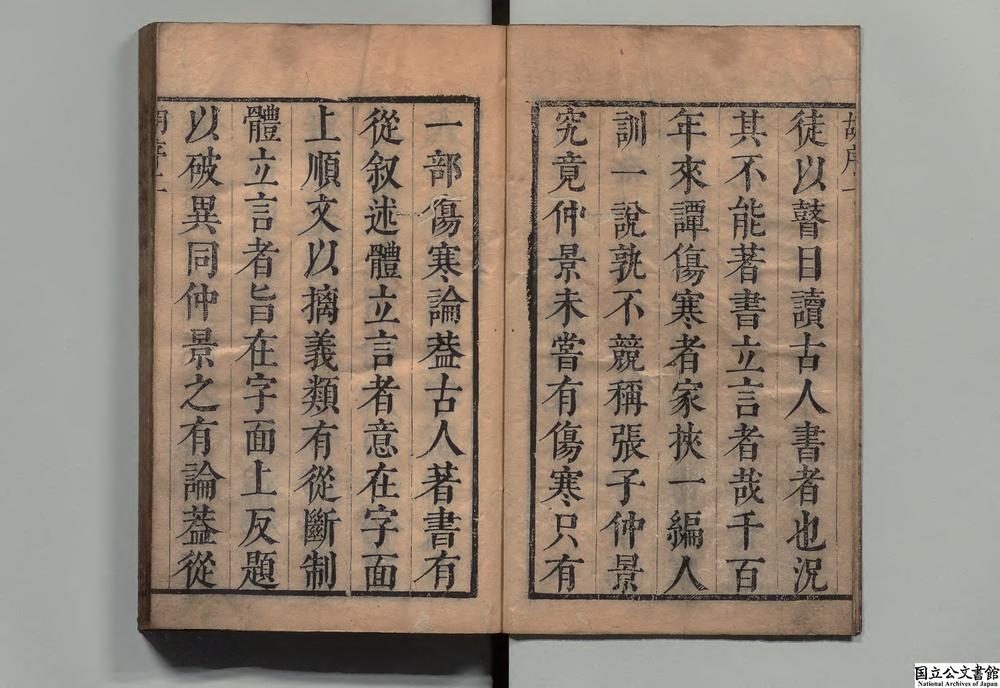 徒以瞽目讀古人書者也況
其不能著書立言者哉千百
年來譚傷寒者家挾一編人
訓一說孰不競稱張子仲景
究竟仲景未嘗有傷寒只有
一部傷寒論葢古人著書有
從叙述體立言者意在字面
上順文以摛義類有從斷制
體立言者旨在字面上反題
以破異同仲景之有論葢從
国立公文書館
National Archives of Japan